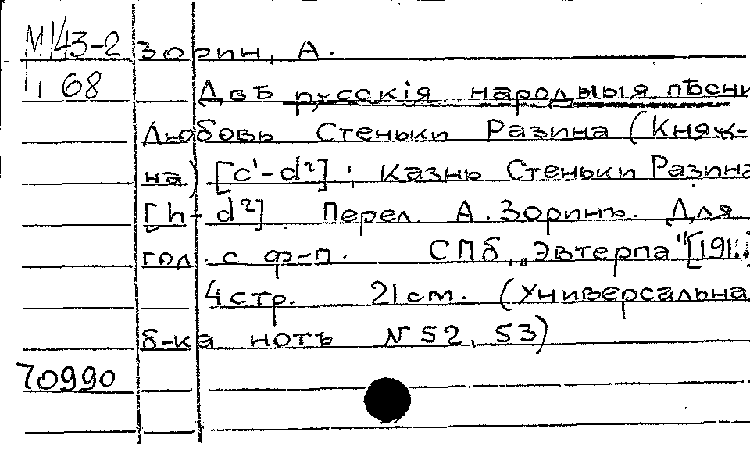 М143-2 Зорин, А.
168 Двѣ русскія народныя пѣсни
Любовь Стеньки Разина (Княж-
на) [c¹-d²]; Казнь Стеньки Разина
[h-d²]. Перел. А. Зоринъ. Для
гол. с ф-п. СПб, „Эвтерпа"
4 стр. 21 см. (Универсальна
б-ка нотъ N 52, 53)
70990